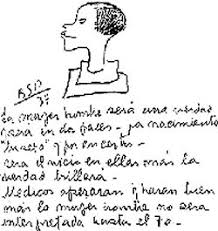 BSP
37
La mujer hombre será una verdad
será en dos fases - ya nacimiento
"injerto" y por
será el vicio en ellas más la
verdad brillará -
Médicos operaran y harán bien
más la mujer hombre no será
interpretada hasta el 70 -